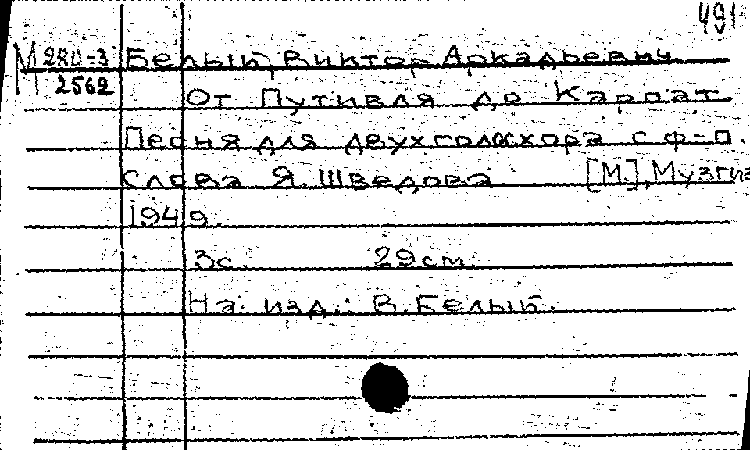 491
М 280-3 Белый, Виктор Аркадьевич
2562
От Путивля до Карпат
Песня для двухголос.хора с ф-п.
Слова Я. Шведова [М.], Музгиз
1949.
3с. 29см.
На изд.: В. Белый.